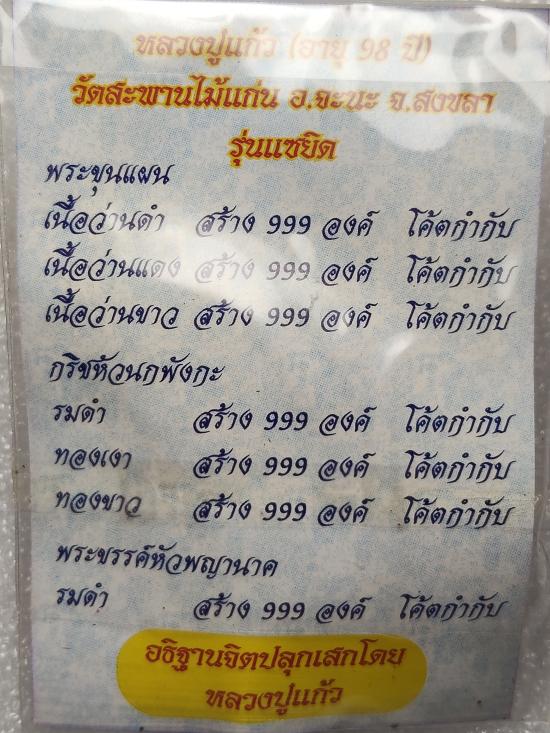 หลวงปู่แก้ว (อายุ 98 ปี)
วัดสะพานไม้แก่น อ.จะนะ จ.สงขลา
รุ่นแซยิด
พระขุนแผน
เนื้อว่านดำ สร้าง 999 องค์ โค้ตกำกับ
เนื้อว่านแดง สร้าง 999 องค์ โค้ตกำกับ
เนื้อว่านขาว สร้าง 999 องค์ โค้ตกำกับ
กริชหัวนกพังกะ
รมดำ สร้าง 999 องค์ โค้ตกำกับ
ทองเงา สร้าง 999 องค์ โค้ตกำกับ
ทองขาว สร้าง 999 องค์ โค้ตกำกับ
พระขรรค์หัวพญานาค
รมดำ สร้าง 999 องค์ โค้ตกำกับ
อธิฐานจิตปลุกเสกโดย
หลวงปู่แก้ว